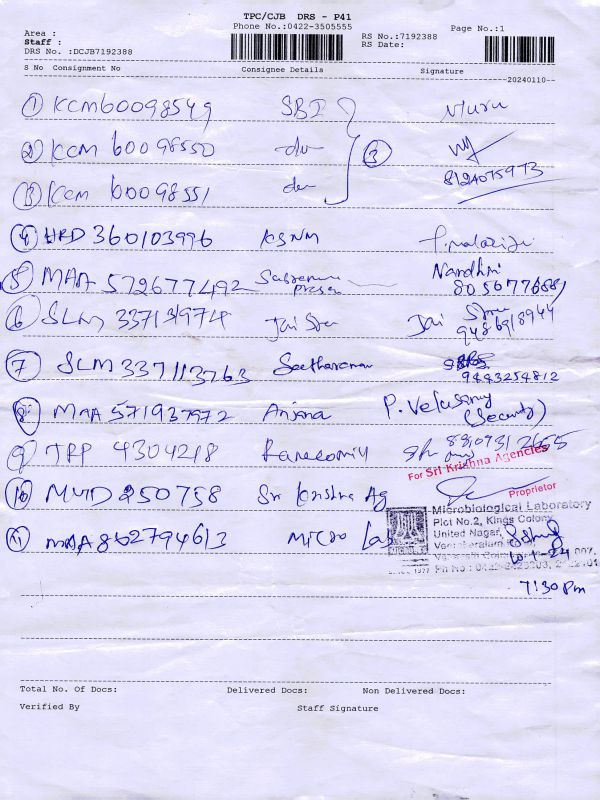 TPC/CJB DRS - P41
Phone No.:0422-3505555
Area :
Staff :
DRS No. :DCJB7192388
RS No.:7192388
RS Date:
Page No.:1
S No Consignment No Consignee Details Signature
20240110
1 KCM60098549 SBI
2 KCM 60098550 -do- 3
3 KCM 60098551 do 8124075973
4 HRD 360103996 KSNM
5 MAA 572677492
6 SLM 337139974 Jai Sree Jai Sree
9486918944
7 SLM 337113763 Seetharaman
9443254812
8 MAA 571937972 Anjana P. Velusamy
(Security)
9 TRP 4304218
For Sri Krishna Agencies
10 MUD 250758 Sri Krishna Ag
Proprietor
11 MAA 862794613 Micro Lab
Microbiological Laboratory
Plot No.2, Kings Colony
United Nagar,
10-1-24
7:30 Pm
Total No. Of Docs: Delivered Docs: Non Delivered Docs:
Verified By Staff Signature